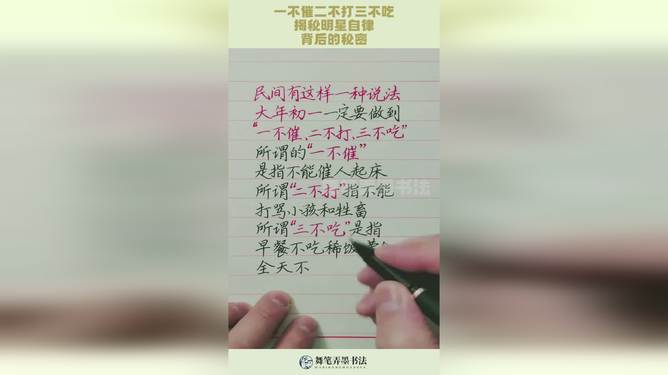 一不催二不打三不吃
揭秘明星自律
背后的秘密
民间有这样一种说法
大年初一一定要做到
“一不催、二不打、三不吃”
所谓的“一不催”
是指不能催人起床
所谓“二不打”指不能
打骂小孩和牲畜
所谓“三不吃”是指
早餐不吃稀饭
全天不
书法
舞笔弄墨书法